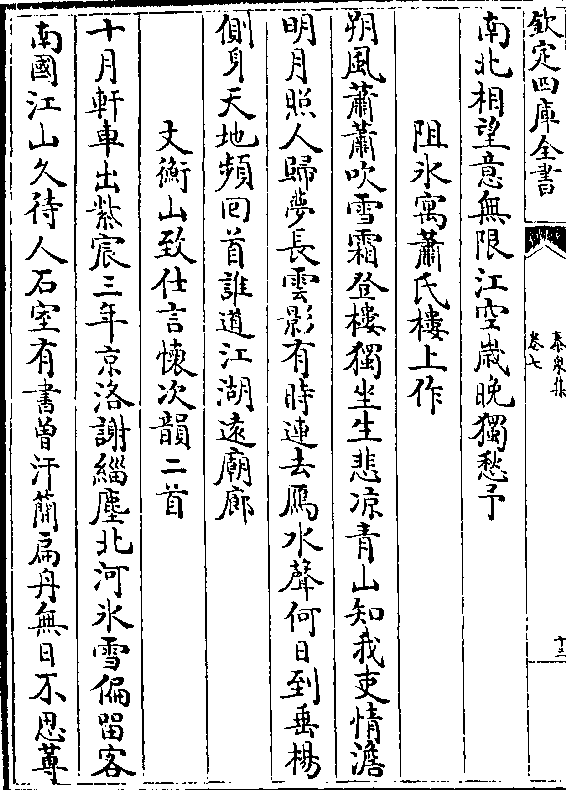 欽定四庫全書
泰泉集
卷七
十三
南北相望意無限江空嵗晚獨愁予
阻氷寓蕭氏樓上作
朔風蕭蕭吹雪霜登樓獨坐生悲凉青山知我吏情澹
明月照人歸夢長雲影有時連去鴈水聲何日到垂楊
側身天地頻回首誰道江湖遠廟廊
文衡山致仕言懷次韻二首
十月軒車出紫宸三年京洛謝緇塵北河氷雪偏留客
南國江山久待人石室有書曽汗簡扁舟無日不思蓴